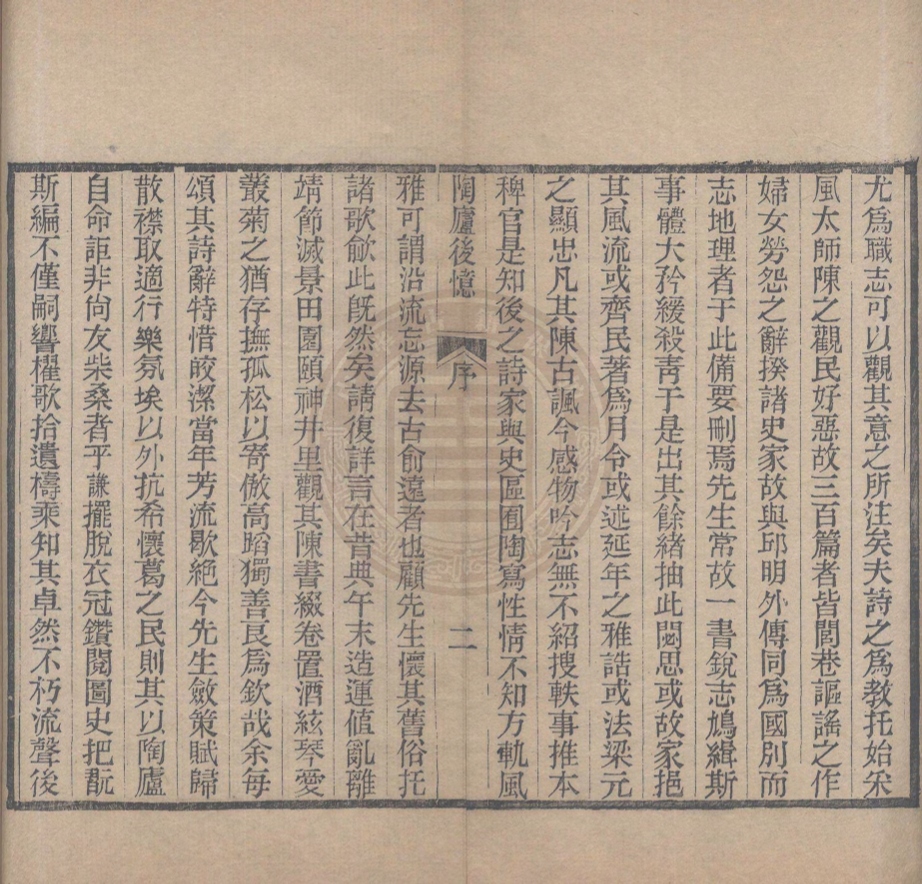 尤爲職志可以觀其意之所注矣夫詩之爲教托始采
風太師陳之觀民好惡故三百篇者皆閭巷謳謠之作
婦女勞怨之辭揆諸史家故與邱明外傳同爲國別而
志地理者于此備要刪焉先生常故一書銳志鳩緝斯
事體大矜緩殺靑于是出其餘緒抽此閟思或故家挹
其風流或齊民著爲月令或述延年之雅誥或法梁元
之顯忠凡其陳古諷今感物吟志無不紹搜軼事推本
稗官是知後之詩家與史區囿陶寫性情不知方軌風
陶廬後憶 序 二
雅可謂沿流忘源去古俞遠者也顧先生懷其舊俗托
諸歌龡此旣然矣請復詳言在昔典午末造運值亂離
靖節滅景田園頤神井里觀其陳書綴卷置酒絃琴愛
叢菊之猶存撫孤松以寄傲高蹈獨善良爲欽哉余每
頌其詩辭特惜皎潔當年芳流歇絕今先生斂策賦歸
散襟取適行樂氛埃以外抗希懷葛之民則其以陶廬
自命詎非尙友柴桑者乎謙擺脫衣冠鑽閱圖史把翫
斯編不僅嗣響櫂歌拾遺檮乘知其卓然不朽流聲後